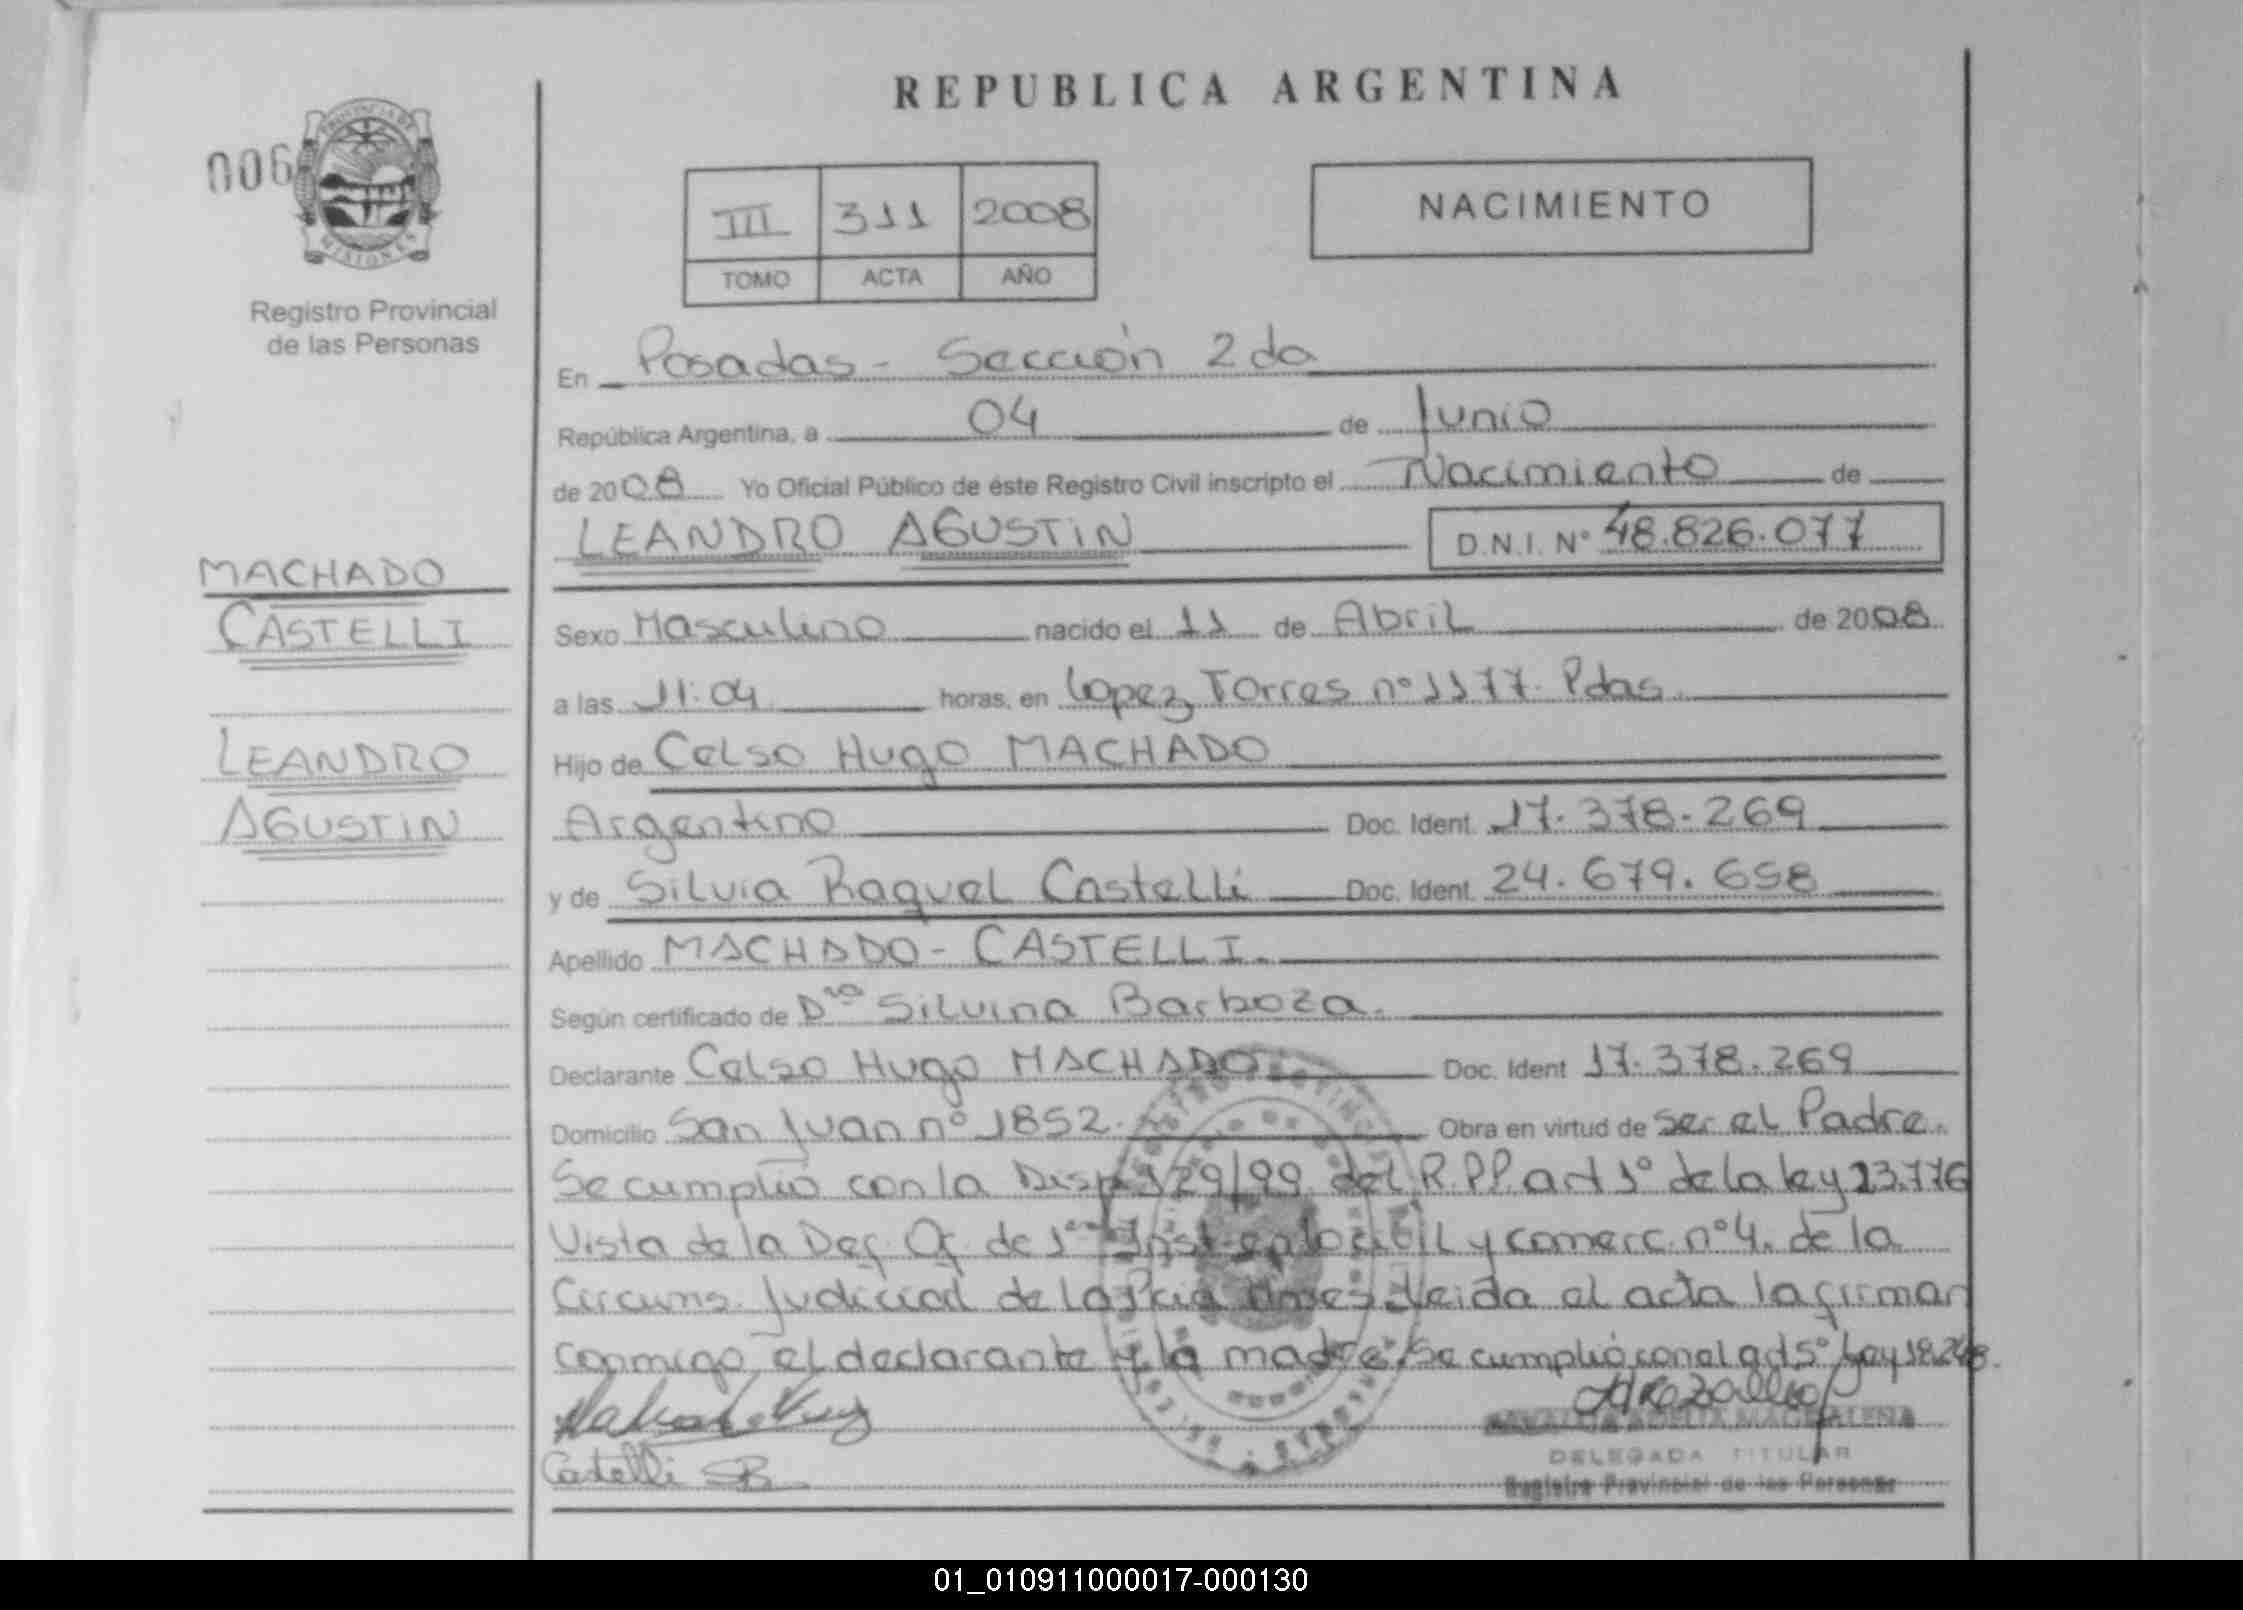 REPUBLICA ARGENTINA
006
PROVINCIA DE MISIONES
Registro Provincial
de las Personas
III 311 2008
TOMO ACTA AÑO
NACIMIENTO
En Posadas - Sección 2da
República Argentina, a 04 de Junio
de 2008 Yo Oficial Público de éste Registro Civil inscripto el Nacimiento de
LEANDRO AGUSTIN D.N.I. Nº 48.826.077
MACHADO
CASTELLI
LEANDRO
AGUSTIN
Sexo Masculino nacido el 11 de Abril de 2008
a las 11:04 horas, en Lopez Torres nº 1177. Pdas.
Hijo de Celso Hugo MACHADO
Argentino Doc. Ident. 17.378.269
y de Silvia Raquel Castelli Doc. Ident. 24.679.658
Apellido MACHADO - CASTELLI.
Según certificado de Dra Silvina Barboza.
Declarante Celso Hugo MACHADO. Doc. Ident 17.378.269
Domicilio San Juan nº 1852. Obra en virtud de ser el Padre.
Se cumplió con la Disp 129/99 del R.P.P. art 1º de la ley 23.776
Vista de la Def. Of. de 1ra Inst. en lo civil y comerc. nº 4. de la
Circuns. Judicial de la Pcia leida el acta la firman
conmigo el declarante y la madre. Se cumplió con el art 5º Ley 18.248.
Castelli SR
MAGDALENA
DELEGADA TITULAR
Registro Provincial de las Personas
01_010911000017-000130